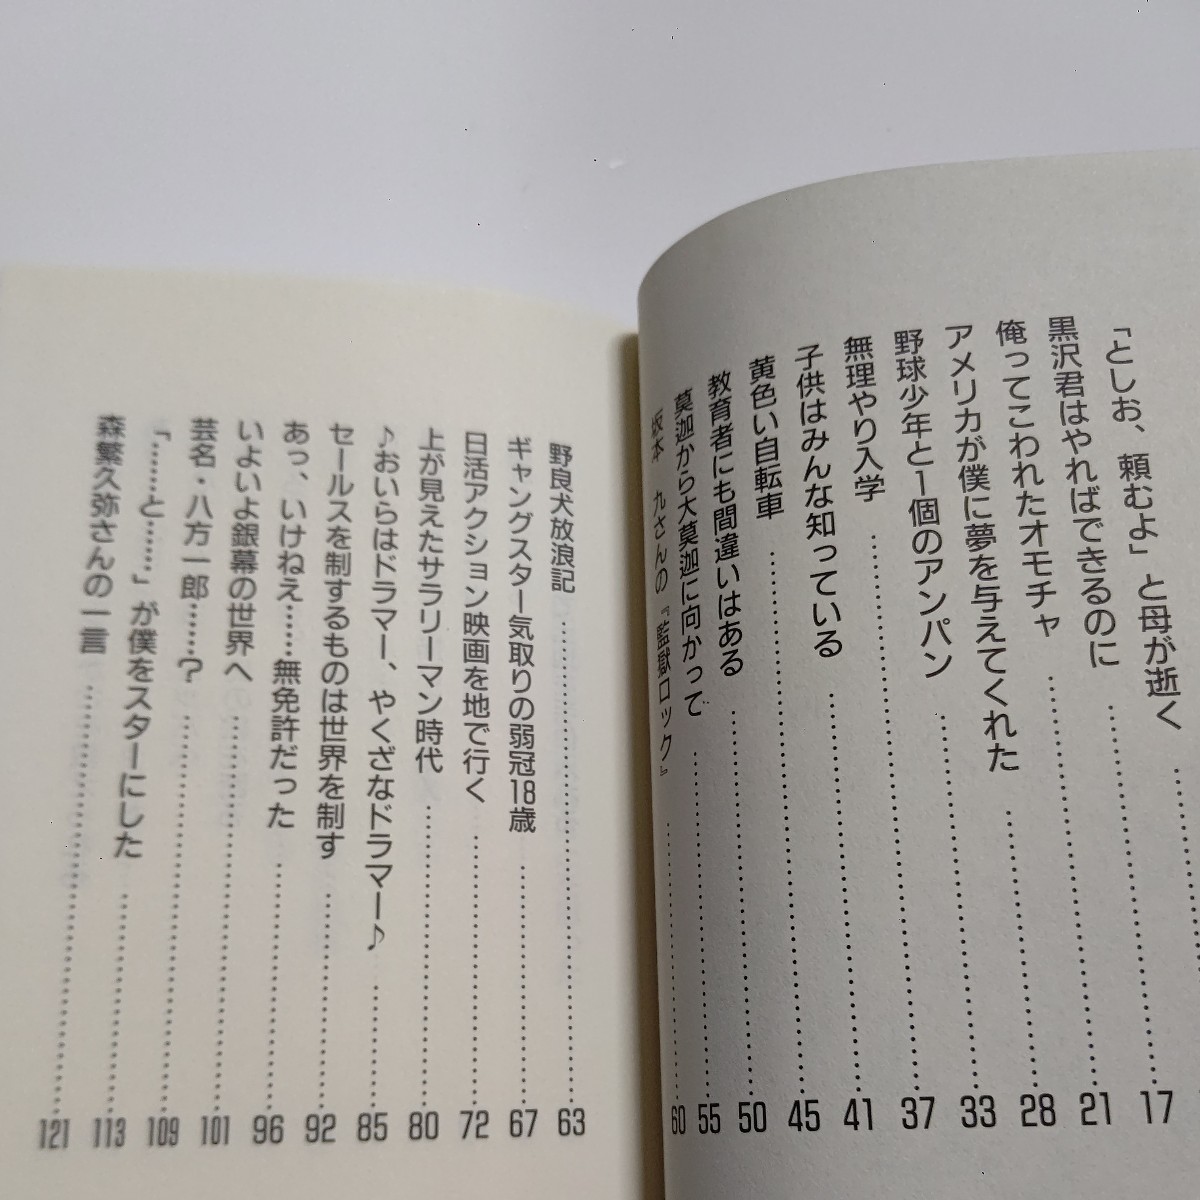 「としお、頼むよ」と母が逝く……
黒沢君はやればできるのに……17
俺ってこわれたオモチャ……21
アメリカが僕に夢を与えてくれた……28
野球少年と1個のアンパン……33
無理やり入学……37
子供はみんな知っている……41
黄色い自転車……45
教育者にも間違いはある……50
莫迦から大莫迦に向かって……55
坂本 九さんの『監獄ロック』……60
野良犬放浪記……63
ギャングスター気取りの弱冠18歳……67
日活アクション映画を地で行く……72
上が見えたサラリーマン時代……80
♪おいらはドラマー、やくざなドラマー♪……85
セールスを制するものは世界を制す……92
あっ、いけねえ……無免許だった……96
いよいよ銀幕の世界へ……101
芸名・八方一郎……？……109
「……と……」が僕をスターにした……113
森繁久弥さんの一言……121